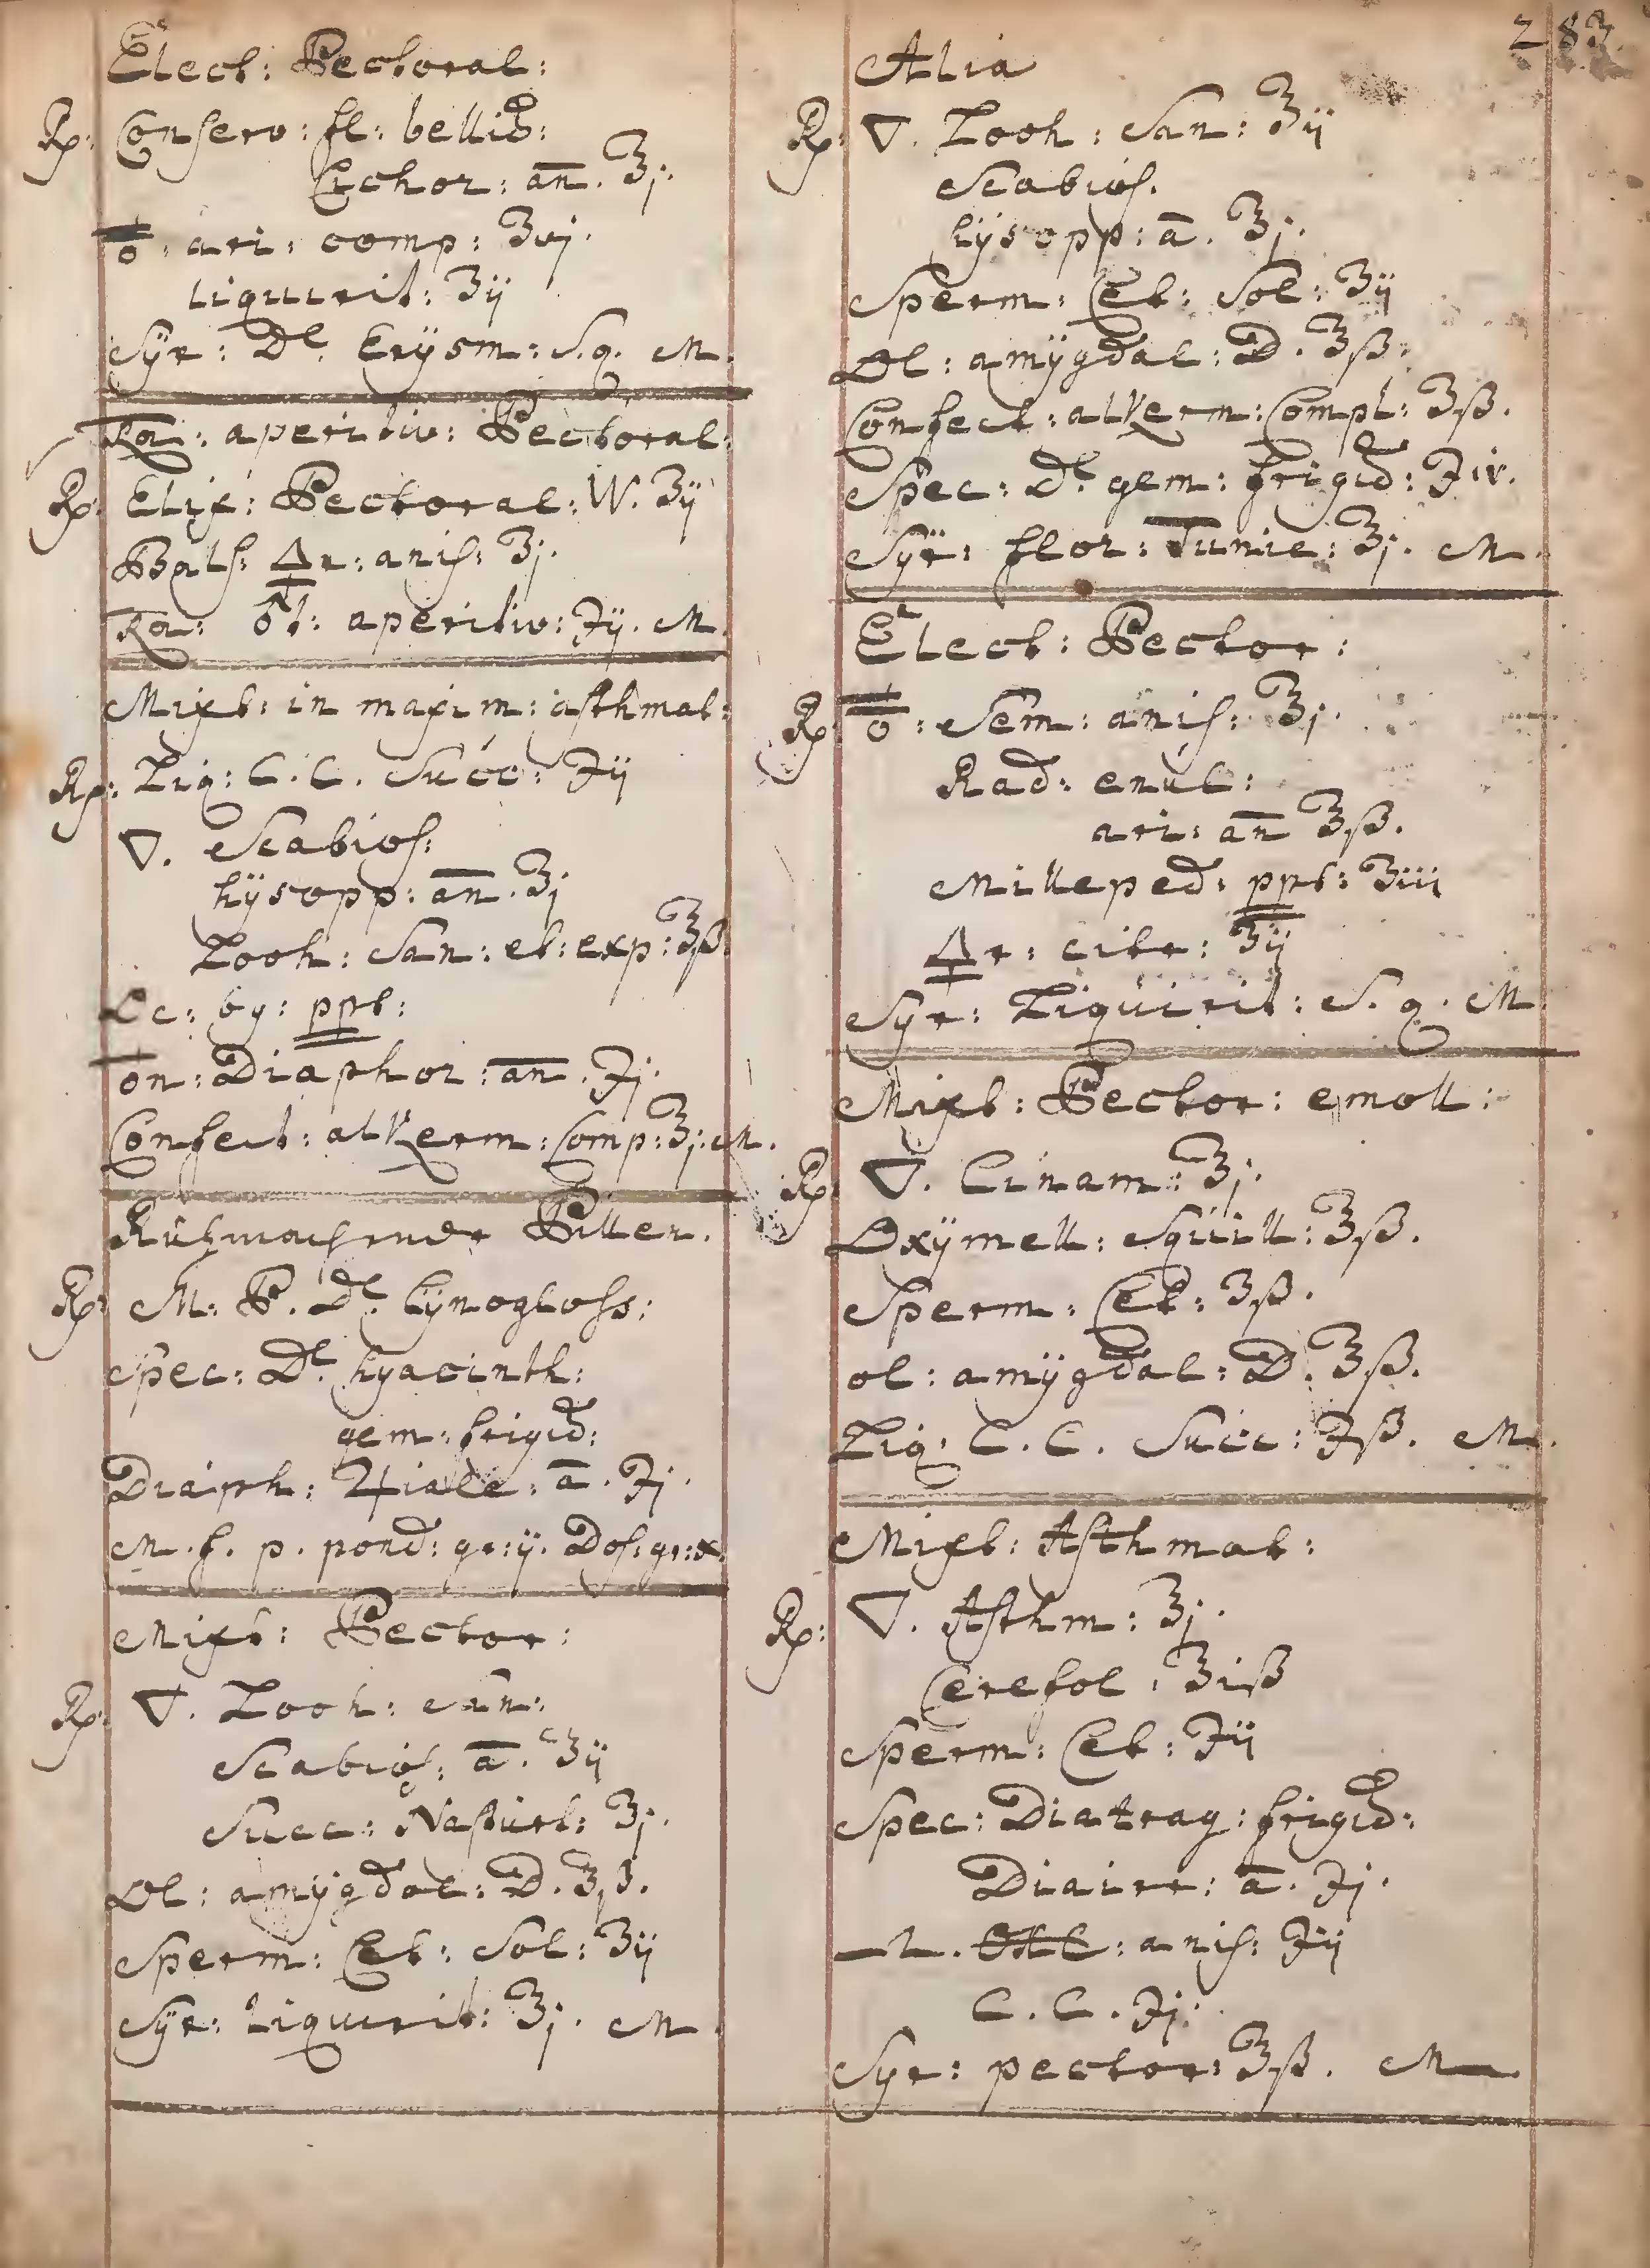 Elect: Pectoral:
Rp: Conserv: fl: bellid:
Cichor: an̄. ʒj.
ari: comp: ʒvj.
liquirit: ʒij
Syr: De Erÿsm: S.q. M.
aperitiv: Pectoral:
Rp: Elix: Pectoral: W. ʒij
Bals: anis: ʒj.
aperitiv: ℈ij. M.
Mixt: in maxim: asthmat:
Rp: Liq: C.C. Succ: ℈ij
🜄. Scabios:
hÿsopp: an̄. ʒj
Looh: San: et: exp: ʒß.
ppt:
Diaphor: an̄. ℈j.
Confect: alkerm: Comp: ʒj. M.
Pillen.
Rp: M. P. De Cÿnogloss:
Spec: De hyacinth:
gem: frigid:
Diaph: ā. ℈j.
M. f. p. pond: gr: ij. Dos: gr: x.
Mixt: Pector:
Rp: 🜄. Looh: San:
Scabios: ā. ʒij
Succ: Nasturt: ʒj.
Ol: amÿgdal: D. ʒß.
Sperm: Cet: Sol: ʒij
Sÿr: liquirit: ʒj. M.
283
Alia
Rp: 🜄. Looh: San: ʒij
Scabios.
hÿsopp: ā. ʒj.
Sperm: Cet: Sol: ʒij
Ol: amÿgdal: D. ʒß.
Confect: alkerm: Compl: ʒß.
Spec: De gem: frigid: ℈iv.
Sÿr: flor: Tunic: ʒj. M.
Elect: Pector:
Rp: Sem: anis: ʒj.
Rad: enul:
ari: an̄ ʒß.
Milleped: ppt: ʒiij
citr: ʒij
Sÿr: Liquirit: S. q. M.
Mixt: Pector: emoll:
Rp: 🜄. Cinam: ʒj.
Oxÿmell: Squill: ʒß.
Sperm: Cet: ʒß.
ol: amÿgdal: D. ʒß.
Liq: C. C. Succ: ℈ß. M.
Mixt: Asthmat:
Rp: 🜄. Asthm: ʒj.
Cerefol: ʒiß
Sperm: Cet: ℈ij
Spec: Diatrag: frigid:
Diairr: ā. ℈j.
anis: ℈ij
C. C. ℈j.
Syr: pector: ʒß. M